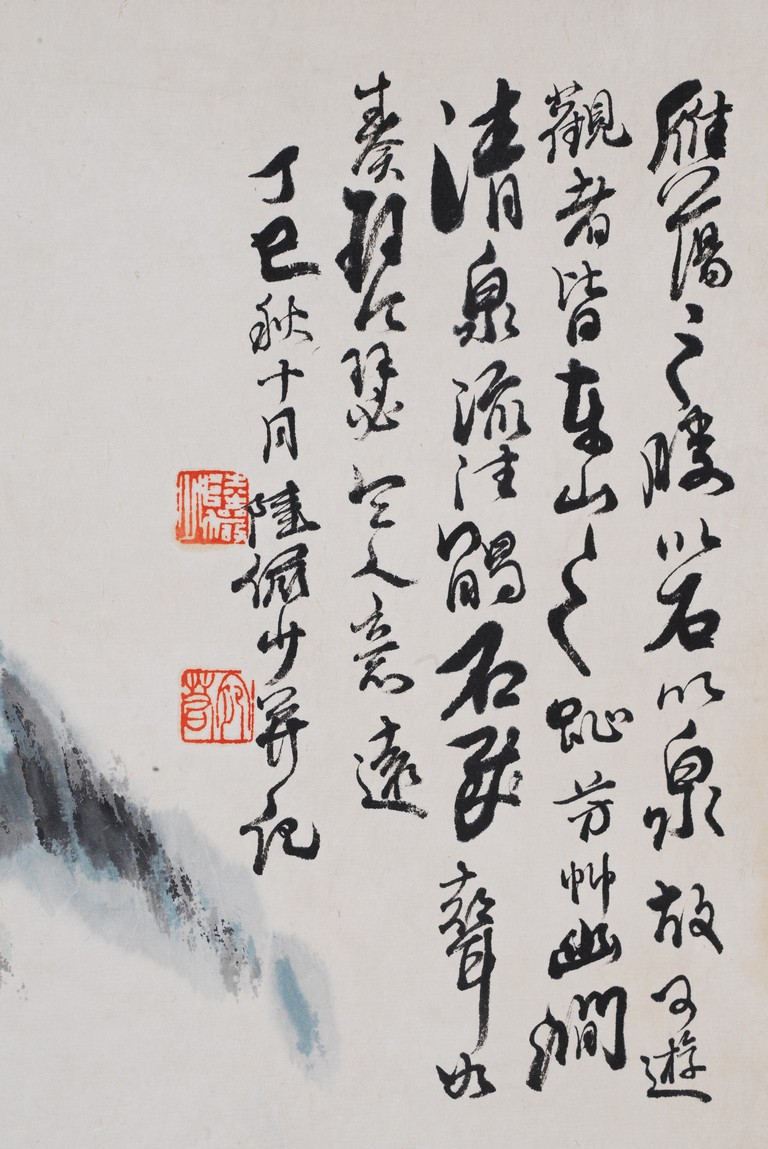 雁蕩之勝以石以泉故可遊
觀者皆在山之趾芳艸幽澗
清泉流注觸石發聲如
奏琴瑟令人意遠
丁巳秋十月陸儼少并記
陸儼少
宛若